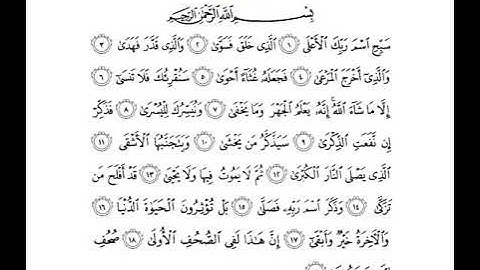 بِسْمِ اللَّهِ الرَّحْمَٰنِ الرَّحِيمِ
سَبِّحِ اسْمَ رَبِّكَ الْأَعْلَى ١ الَّذِي خَلَقَ فَسَوَّىٰ ٢ وَالَّذِي قَدَّرَ فَهَدَىٰ ٣
وَالَّذِي أَخْرَجَ الْمَرْعَىٰ ٤ فَجَعَلَهُ غُثَاءً أَحْوَىٰ ٥ سَنُقْرِئُكَ فَلَا تَنسَىٰ ٦
إِلَّا مَا شَاءَ اللَّهُ إِنَّهُ يَعْلَمُ الْجَهْرَ وَمَا يَخْفَىٰ ٧ وَنُيَسِّرُكَ لِلْيُسْرَىٰ ٨ فَذَكِّرْ
إِن نَّفَعَتِ الذِّكْرَىٰ ٩ سَيَذَّكَّرُ مَن يَخْشَىٰ ١٠ وَيَتَجَنَّبُهَا الْأَشْقَى ١١
الَّذِي يَصْلَى النَّارَ الْكُبْرَىٰ ١٢ ثُمَّ لَا يَمُوتُ فِيهَا وَلَا يَحْيَىٰ ١٣ قَدْ أَفْلَحَ مَن
تَزَكَّىٰ ١٤ وَذَكَرَ اسْمَ رَبِّهِ فَصَلَّىٰ ١٥ بَلْ تُؤْثِرُونَ الْحَيَوٰةَ الدُّنْيَا ١٦
وَالْآخِرَةُ خَيْرٌ وَأَبْقَىٰ ١٧ إِنَّ هَٰذَا لَفِي الصُّحُفِ الْأُولَىٰ ١٨ صُحُفِ